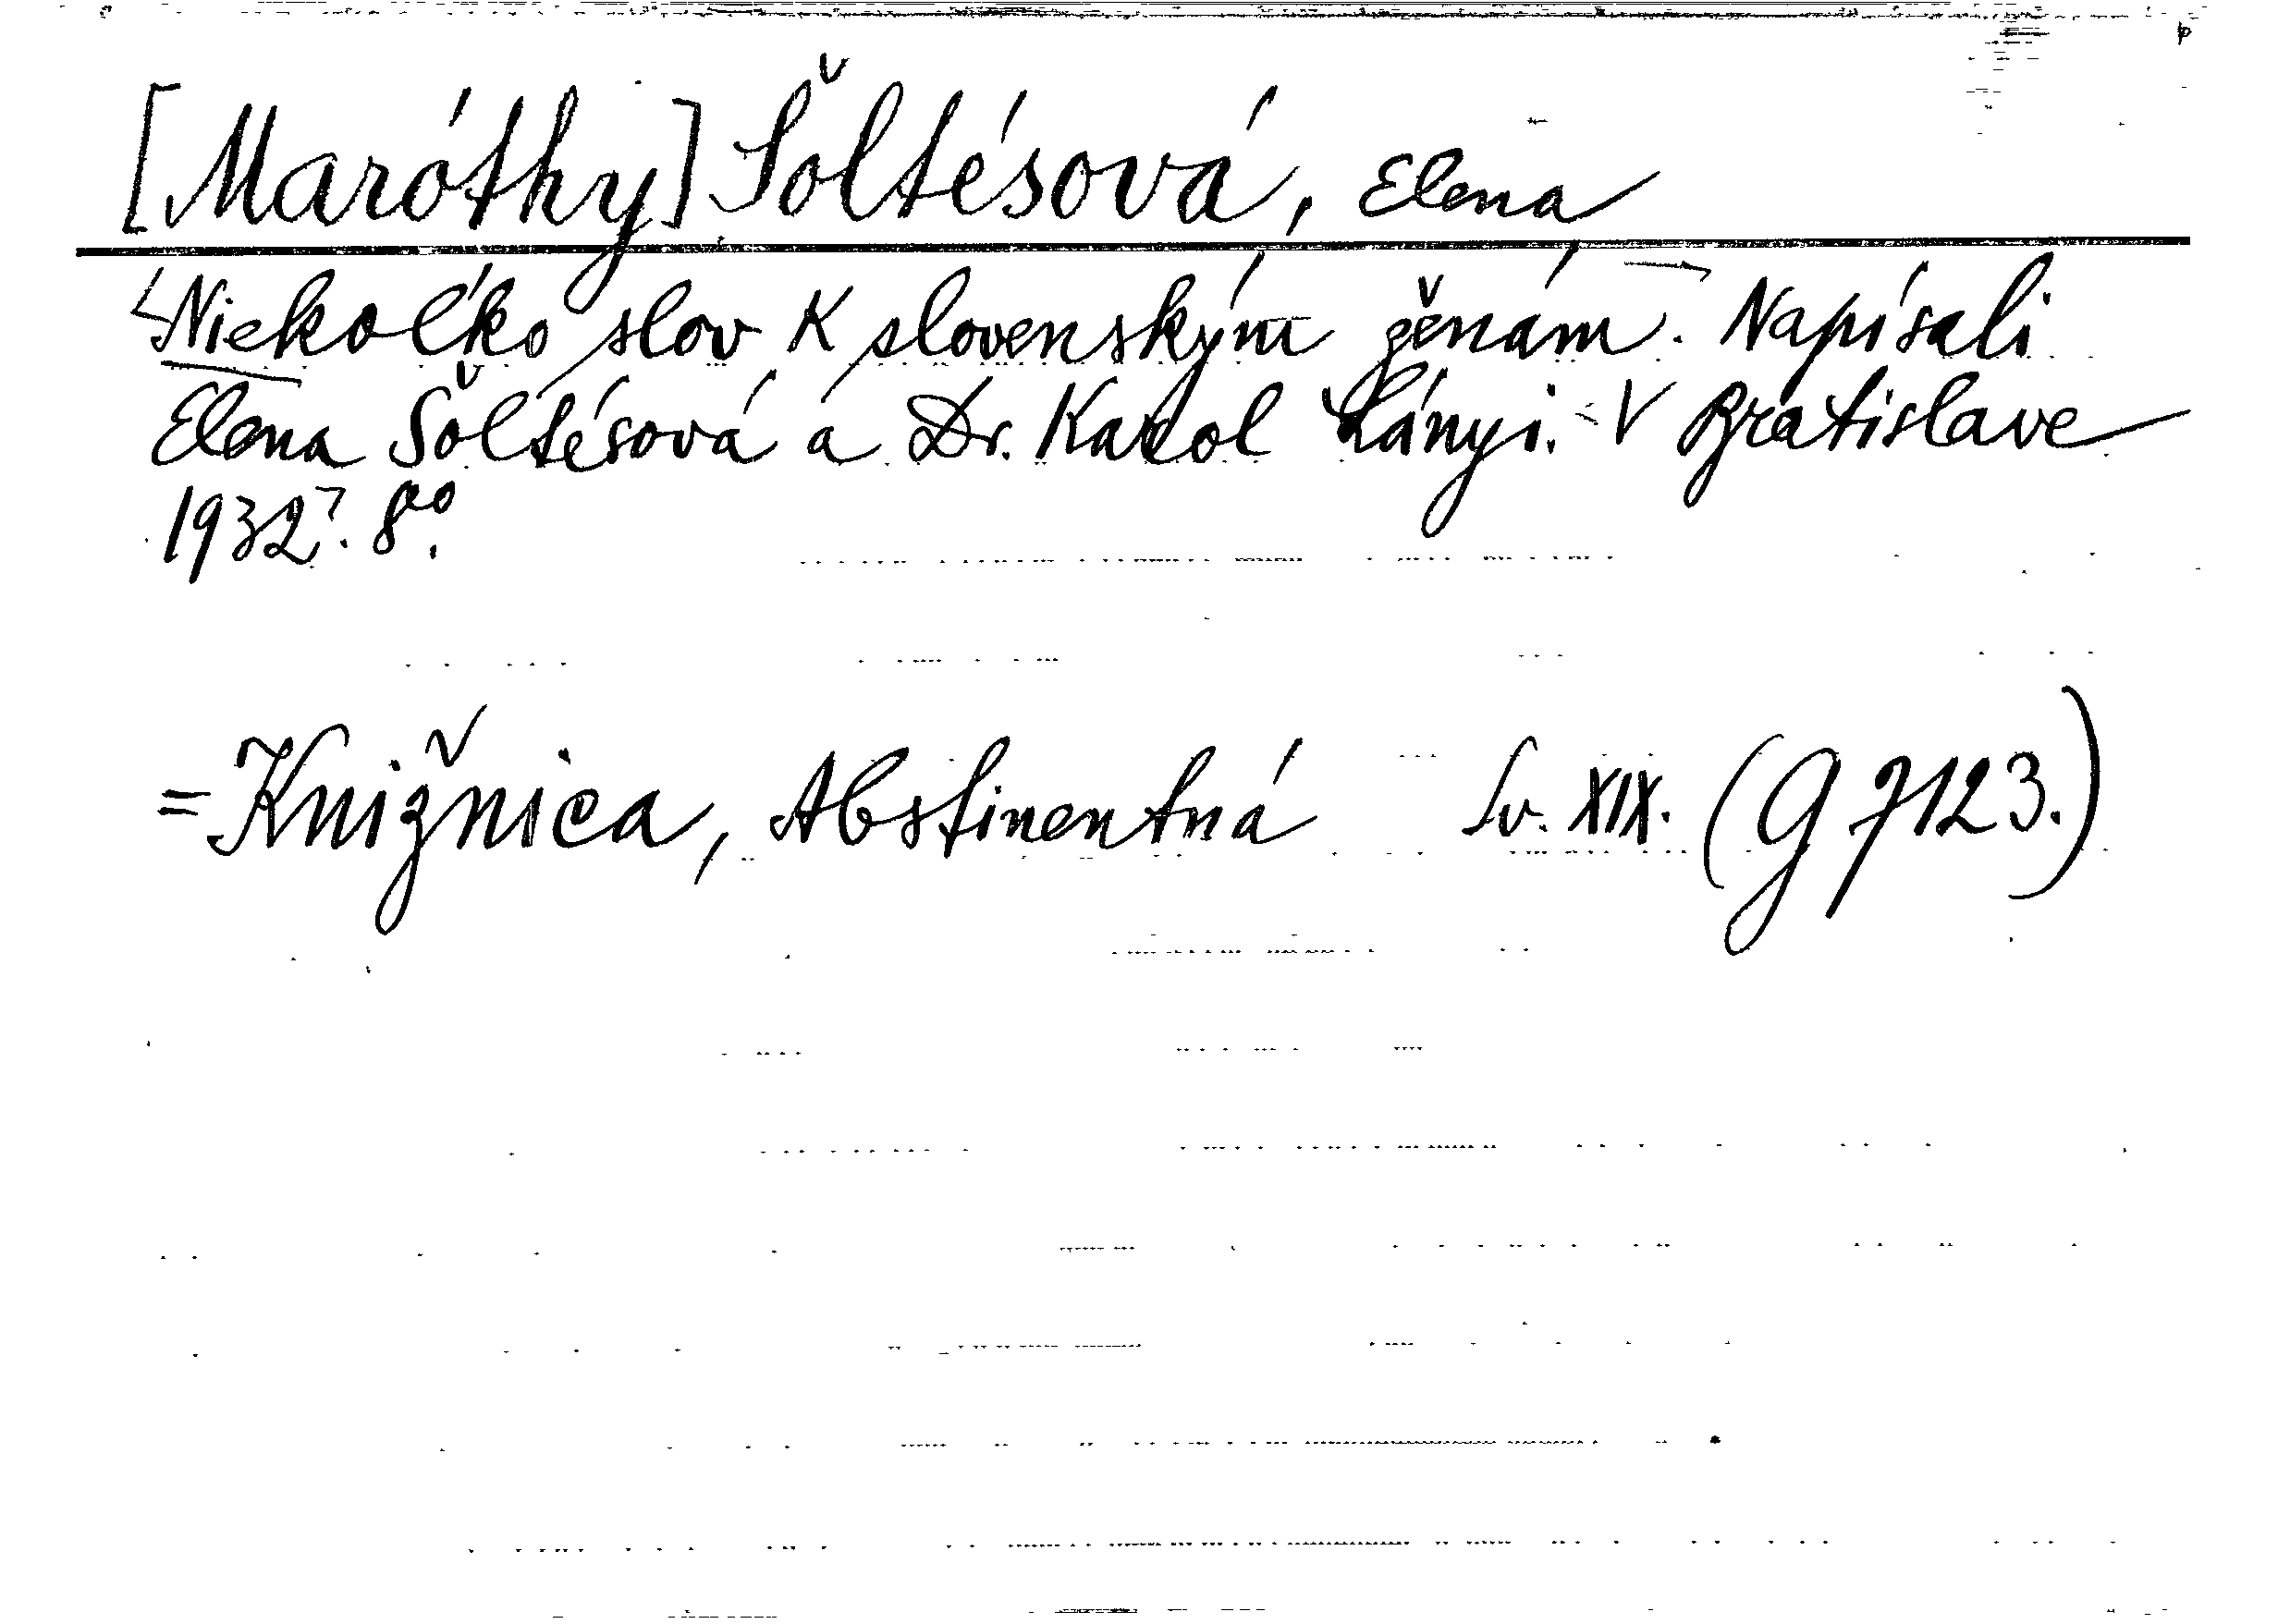 [Maróthy] Šoltésová, Elena
Niekoľko slov k slovenským ženám. Napísali
Elena Šoltésová a Dr. Karol Lányi. V Bratislave
1932. 8°.
= Knižnica, Abstinentná Sv. XIX. (G 7123.)